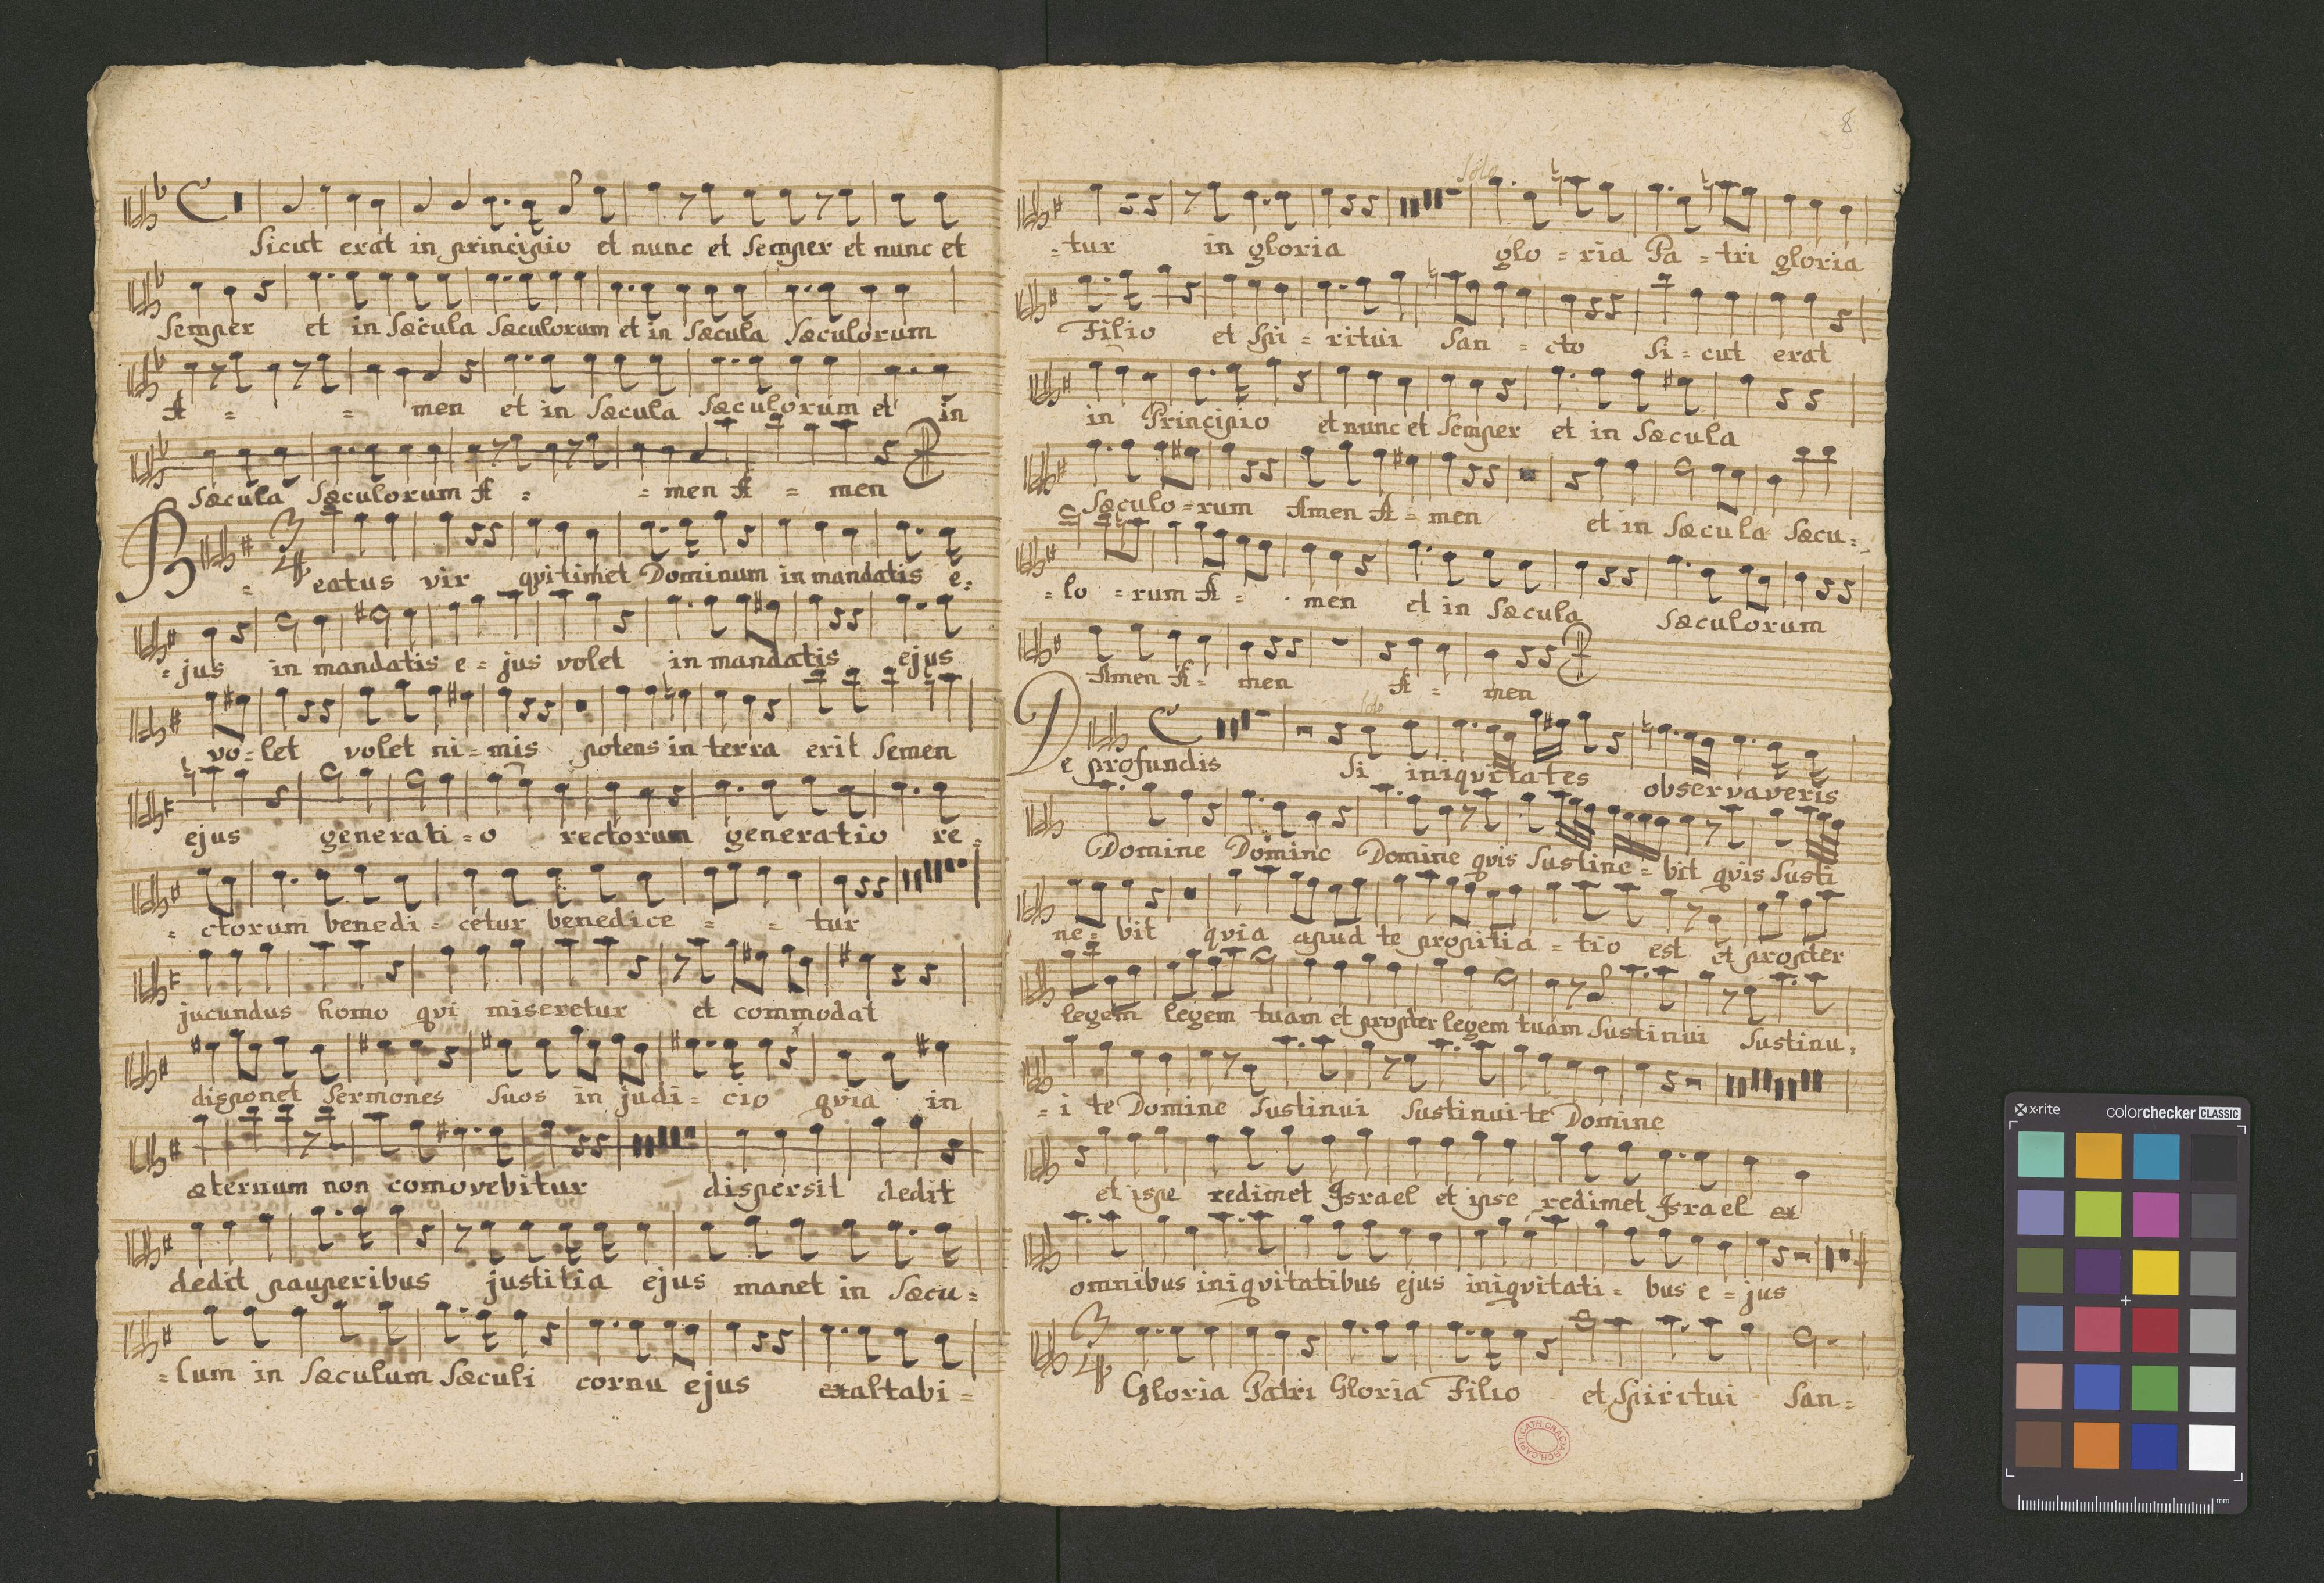 Sicut erat in principio et nunc et Semper et nunc et
Semper et in Sæcula Sæculorum et in Sæcula Sæculorum
A = = men et in Sæcula Sæculorum et in
Sæcula Sæculorum A = = men A = men
B = eatus vir qvi timet Dominum in mandatis e =
= jus in mandatis e = jus volet in mandatis ejus
vo = let volet ni = mis potens in terra erit Semen
ejus generati = o rectorum generatio re =
= ctorum benedi = cetur benedice = = tur
jucundus homo qvi miseretur et commodat
disponet Sermones Suos in judi = cio qvia in
æternum non comovebitur dispersit dedit
dedit pauperibus justitia ejus manet in Sæcu =
= lum in Sæculum Sæculi cornu ejus exaltabi =
8
Solo
= tur in gloria glo = ria Pa = tri gloria
Filio et Spi = ritui San = cto Si = cut erat
in Principio et nunc et Semper et in Sæcula
Sæculo = rum Amen A = men et in Sæcula Sæcu =
= lo = rum A = men et in Sæcula Sæculorum
Amen A = men A = men
Solo
De profundis Si iniqvitates observaveris
Domine Domine Domine qvis Sustine = bit qvis Susti
ne = bit qvia apud te propitia = tio est et propter
legem legem tuam et propter legem tuam Sustinui Sustinu =
= i te Domine Sustinui Sustinui te Domine
et ispe redimet Israel et ipse redimet Israel ex
omnibus iniqvitatibus ejus iniqvitati = bus e = jus
3/4 Gloria Patri Gloria Filio et Spiritui San =
ARCH. CAPIT. CATH. CRAC.
x-rite colorchecker CLASSIC
mm